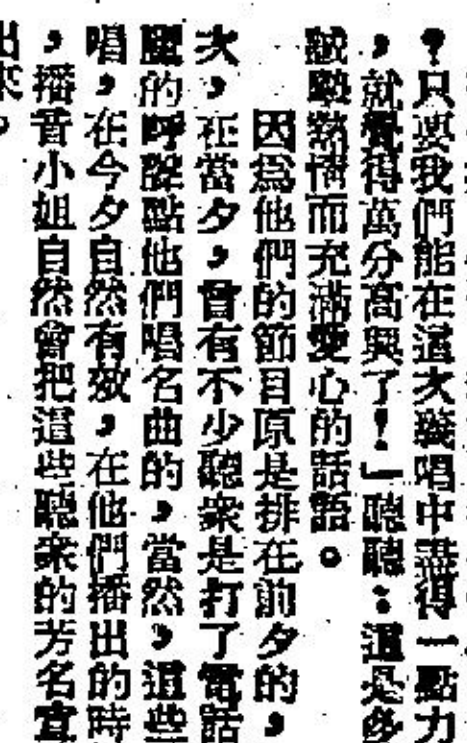 ，只要我們能在這次義唱中盡得一點力
，就覺得萬分高興了！」聽聽：這是多
誠摯熱情而充滿愛心的話語。
因爲他們的節目原是排在前夕的，
次，在當夕，曾有不少聽衆是打了電話
麗的呼聲點他們唱名曲的，當然，這些
唱，在今夕自然有效，在他們播出的時
，播音小姐自然會把這些聽衆的芳名宣
出來，